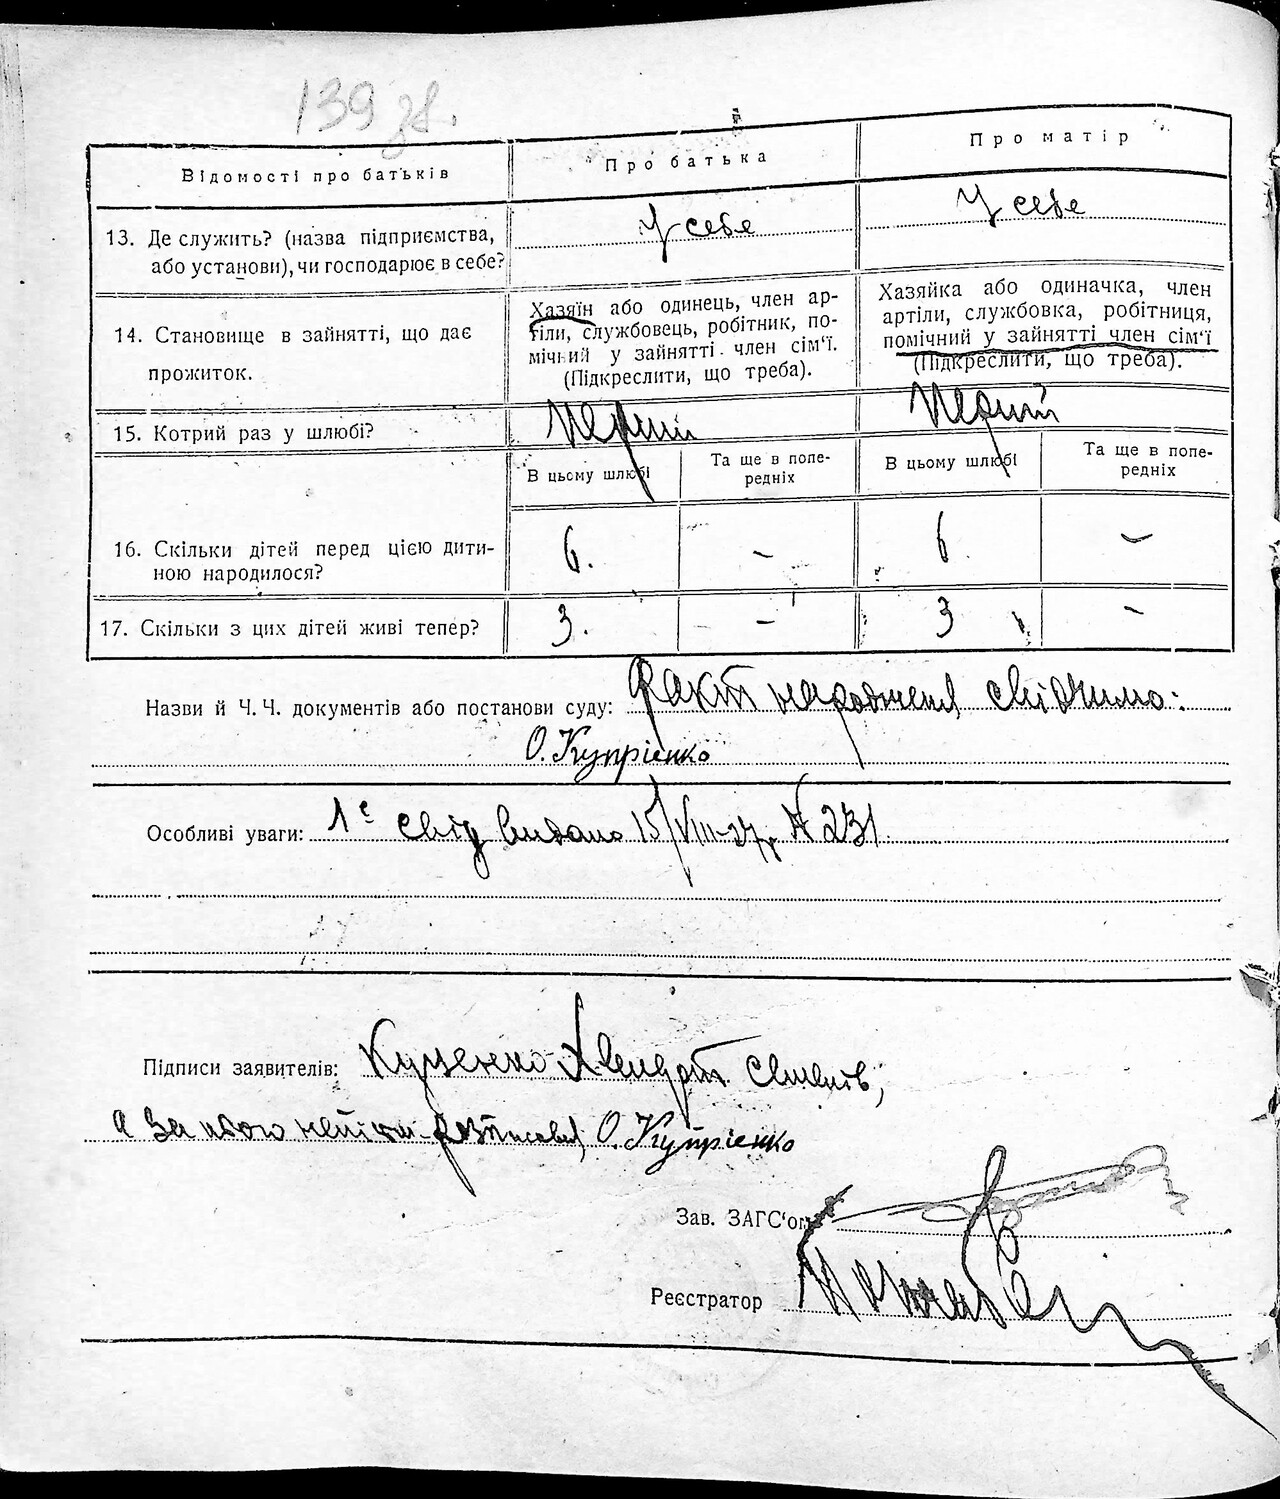 139 зв.
Відомості про батьків
Про батька
Про матір
13. Де служить? (назва підприємства, або установи), чи господарює в себе?
У себе
У себе
14. Становище в зайнятті, що дає прожиток.
Хазяїн або одинець, член ар-
тіли, службовець, робітник, по-
мічний у зайнятті член сім'ї.
(Підкреслити, що треба).
Хазяйка або одиначка, член
артіли, службовка, робітниця,
помічний у зайнятті член сім'ї
(Підкреслити, що треба).
15. Котрий раз у шлюбі?
Перший
Перший
В цьому шлюбі
Та ще в попе-
редніх
В цьому шлюбі
Та ще в попе-
редніх
16. Скільки дітей перед цією дити-
ною народилося?
6. – 6 –
17. Скільки з цих дітей живі тепер?
3. – 3 –
Назви й Ч. Ч. документів або постанови суду: Факт народження свідчимо:
О. Купрієнко
Особливі уваги: 1е свід видано 15/VIII-27р N 231
Підписи заявителів: Куценко Хвендот Семенів,
а за нього неписм. розписався О. Купрієнко
Зав. ЗАГС'ом
Реєстратор